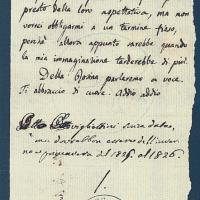 presto della loro aspettativa, ma non
vorrei obbligarmi a un termine fisso,
perchè allora appunto avrebbe quando
la mia immaginazione tarderebbe di più.
Della Donna parleremo a voce.
Ti abbraccio di cuore. addio addio
senza data,
ma dovrebbe essere dell'inver
no o primavera del 1825 al 1826.
1.